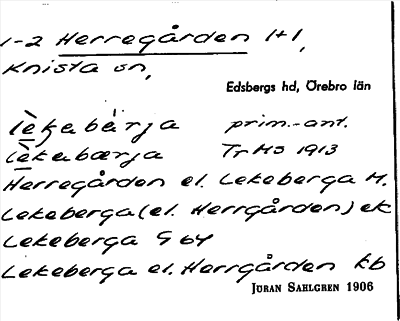 1-2 Herregården 1+1,
Knista sn,
Edsbergs hd, Örebro län
lèkabärja prim.-ant.
Lèkebærja TrHS 1913
Herregården el. Lekeberga H.
Lekeberga (el. Herrgården) ek
Lekeberga G 64
Lekeberga el. Herrgården kb
JÖRAN SAHLGREN 1906